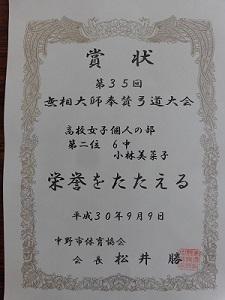 賞状
第35回
無相大師奉賛弓道大会
高校女子個人の部
第二位 6中
小林美菜子
栄誉をたたえる
平成30年9月9日
中野市体育協会
会長 松井 勝